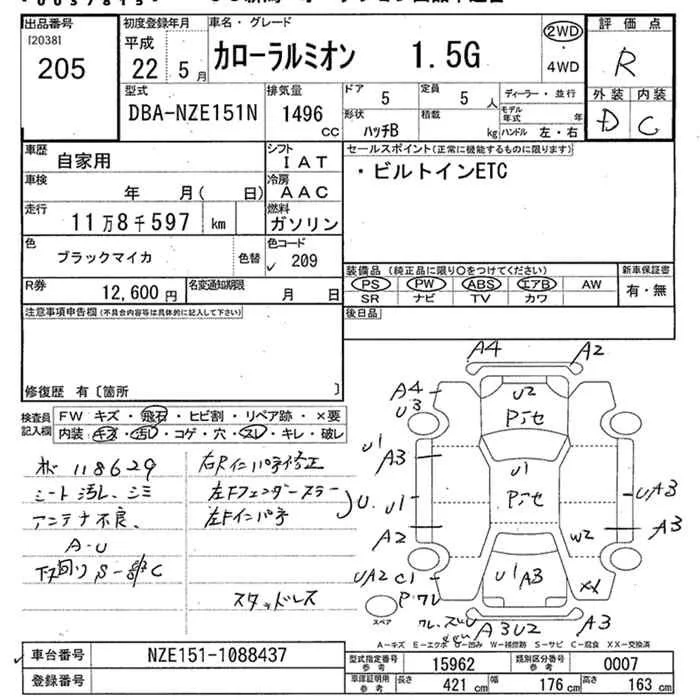 出品番号
[2038]
205
初度登録年月
平成
22年5月
車名・グレード
カローラルミオン 1.5G
2WD
・
4WD
評価点
R
外装 内装
D C
型式
DBA-NZE151N
排気量
1496
CC
ドア
5
定員
5人
ディーラー・並行
形状
ハッチB
積載
kg
モデル年式 年
ハンドル 左・右
車歴
自家用
シフト
IAT
セールスポイント(正常に機能するものに限ります)
・ビルトインETC
車検
年 月( 日)
冷房
AAC
走行
11万8千597 km
燃料
ガソリン
色
ブラックマイカ
色替
色コード
209
装備品 (純正品に限り○をつけてください)
PS PW ABS エアB AW
SR ナビ TV カワ
新車保証書
有・無
R券
12,600円
名変通知期限
月 日
後日品
注意事項申告欄(不具合内容等は具体的に記入して下さい)
修復歴 有〔箇所 〕
検査員記入欄
FW キズ・飛石・ヒビ割・リペア跡・×要
内装・キズ・汚レ・コゲ・穴・スレ・キレ・破レ
118629
シート汚レ、シミ
アンテナ不良、
A-U
下回りS-部C
右Rインパネ修正
左Fフェンダーステー
左Fインパネ
U.
スタッドレス
A4 A2
A4 U2
U3
Pシセ
U1
A3
U1
U1
Pシセ
UA3
A2
W2
A3
UA2 C1
U1 A3
XX
P.ワレ
スペア
A3U2 A3
A-キズ E-エクボ U-凹み W-補修跡 S-サビ C-腐食 XX-交換済
車台番号
NZE151-1088437
登録番号
型式指定番号 参考
15962
類別区分番号 参考
0007
車庫証明用 参考
長さ 421 cm
幅 176 cm
高さ 163 cm